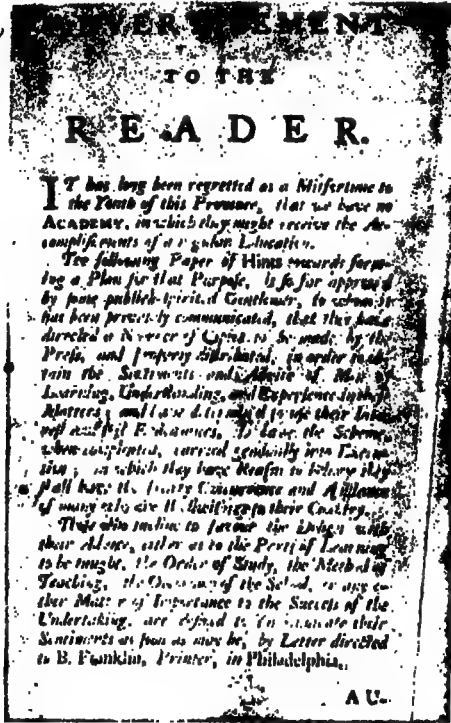 ADVERTISEMENT
TO THE
READER.
IT has long been regretted as a Misfortune to
the Youth of this Province, that we have no
ACADEMY, in which they might receive the Ac-
complishments of a regular Education.
The following Paper of Hints towards form-
ing a Plan for that Purpose, is so far approv'd
by some publick-spirited Gentlemen, to whom it
has been privately communicated, that they have
directed a Number of Copies to be made by the
Press, and properly distributed, in order to ob-
tain the Sentiments and Advice of Men of
Learning, Understanding, and Experience in these
Matters; and have determin'd to use their
Endeavours, to have the Scheme,
when compleated, carried gradually into Execu-
tion; in which they have Reason to believe they
shall have the hearty Concurrence and Assistance
of many who are Wellwishers to their Country.
Those who incline to favour the Design with
their Advice, either as to the Parts of Learning
to be taught, the Order of Study, the Method of
Teaching, the Oeconomy of the School, or any o-
ther Matter of Importance to the Success of the
Undertaking, are desired to communicate their
Sentiments as soon as may be, by Letter directed
to B. Franklin, Printer, in Philadelphia.
AU-